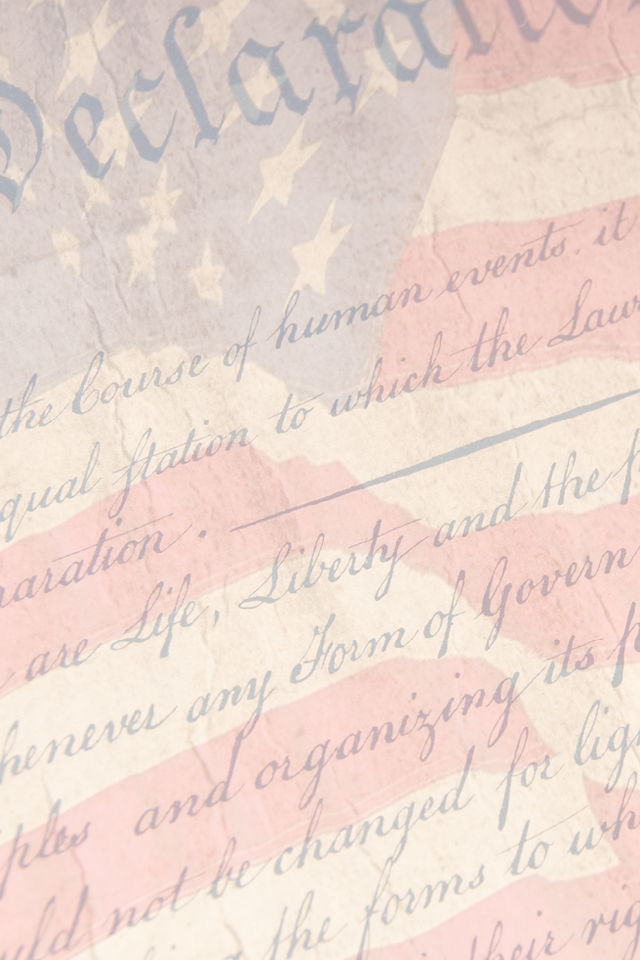 Declarati
the Course of human events. it
qual station to which the Laws
aration.
are Life, Liberty and the p
henever any Form of Govern
ples and organizing its p
uld not be changed for ligh
the forms to wh
their rig